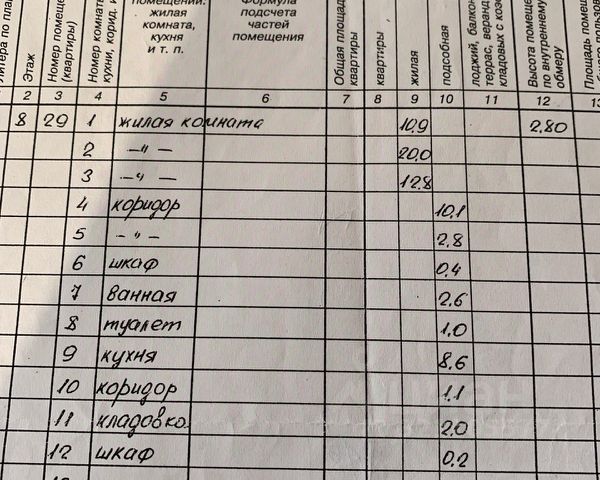 Литера по пла
Этаж
Номер помеще
(квартиры)
Номер комнаты
кухни, корид. и
помещений:
жилая
комната,
кухня
и т. п.
Формула
подсчета
частей
помещения
Общая площадь
квартиры
квартиры
жилая
подсобная
лоджий, балкон
террас, веранд
кладовых с коэф
Высота помеще
по внутреннему
обмеру
Площадь помещ
2 3 4 5 6 7 8 9 10 11 12 13
8 29 1 жилая комната 10.9 2.80
2 -"- 20,0
3 -"- 12,8
4 коридор 10,1
5 -"- 2,8
6 шкаф 0,4
7 ванная 2,6
8 туалет 1,0
9 кухня 8,6
10 коридор 1,1
11 кладовка 2,0
12 шкаф 0,2